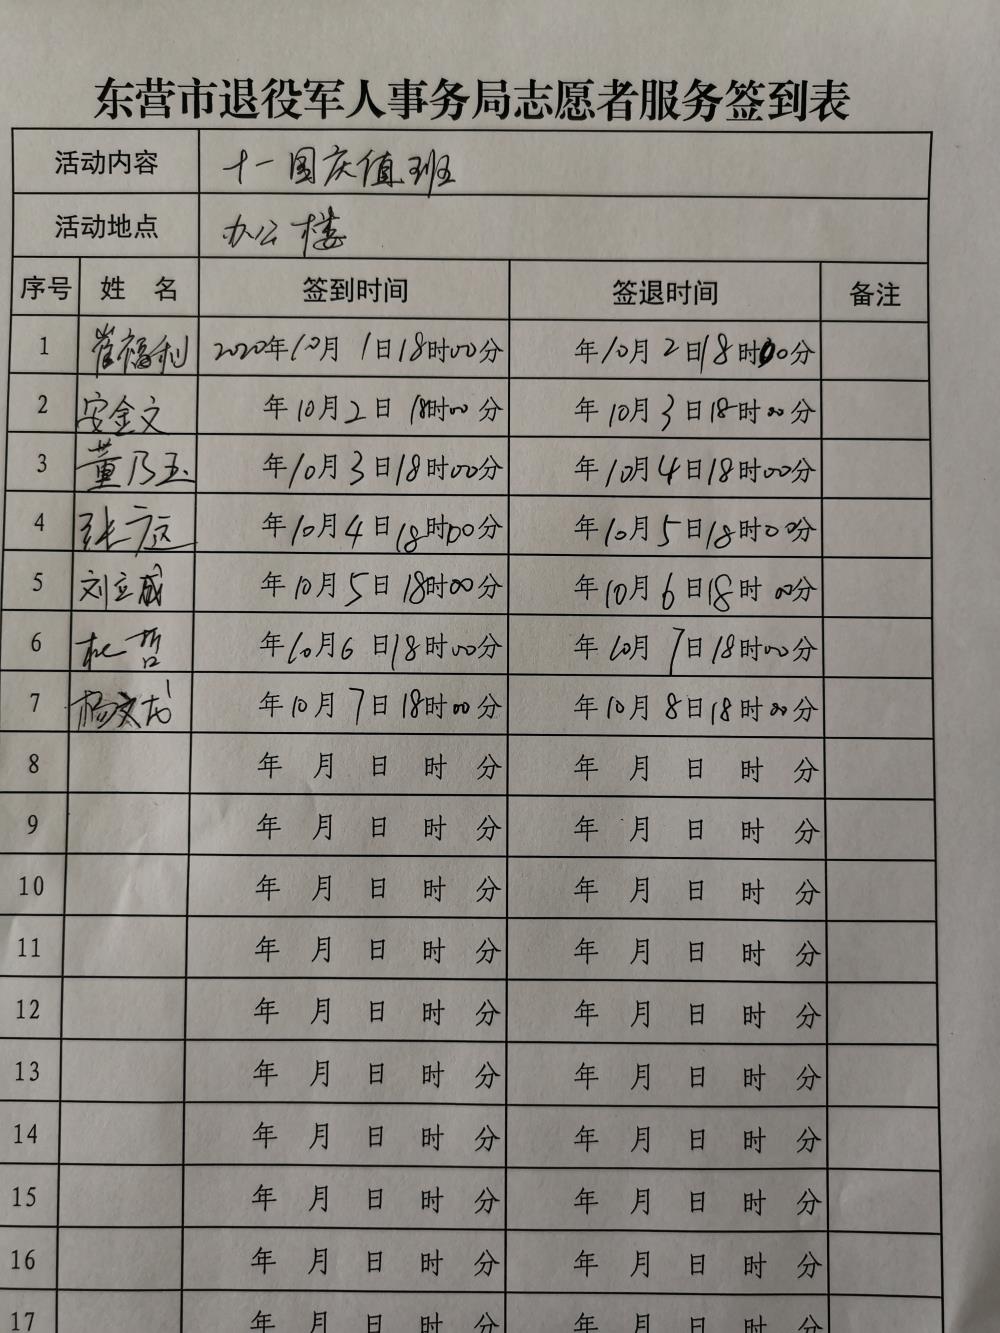 东营市退役军人事务局志愿者服务签到表
活动内容 十一国庆值班
活动地点 办公楼
序号 姓 名 签到时间 签退时间 备注
1 崔福利 2020年10月1日18时00分 年10月2日18时00分
2 安金文 年10月2日18时00分 年10月3日18时00分
3 董乃玉 年10月3日18时00分 年10月4日18时00分
4 张 年10月4日18时00分 年10月5日18时00分
5 刘立成 年10月5日18时00分 年10月6日18时00分
6 杜哲 年10月6日18时00分 年10月7日18时00分
7 杨文龙 年10月7日18时00分 年10月8日18时00分
8 年 月 日 时 分 年 月 日 时 分
9 年 月 日 时 分 年 月 日 时 分
10 年 月 日 时 分 年 月 日 时 分
11 年 月 日 时 分 年 月 日 时 分
12 年 月 日 时 分 年 月 日 时 分
13 年 月 日 时 分 年 月 日 时 分
14 年 月 日 时 分 年 月 日 时 分
15 年 月 日 时 分 年 月 日 时 分
16 年 月 日 时 分 年 月 日 时 分
17 年 月 日 时 分 年 月 日 时 分